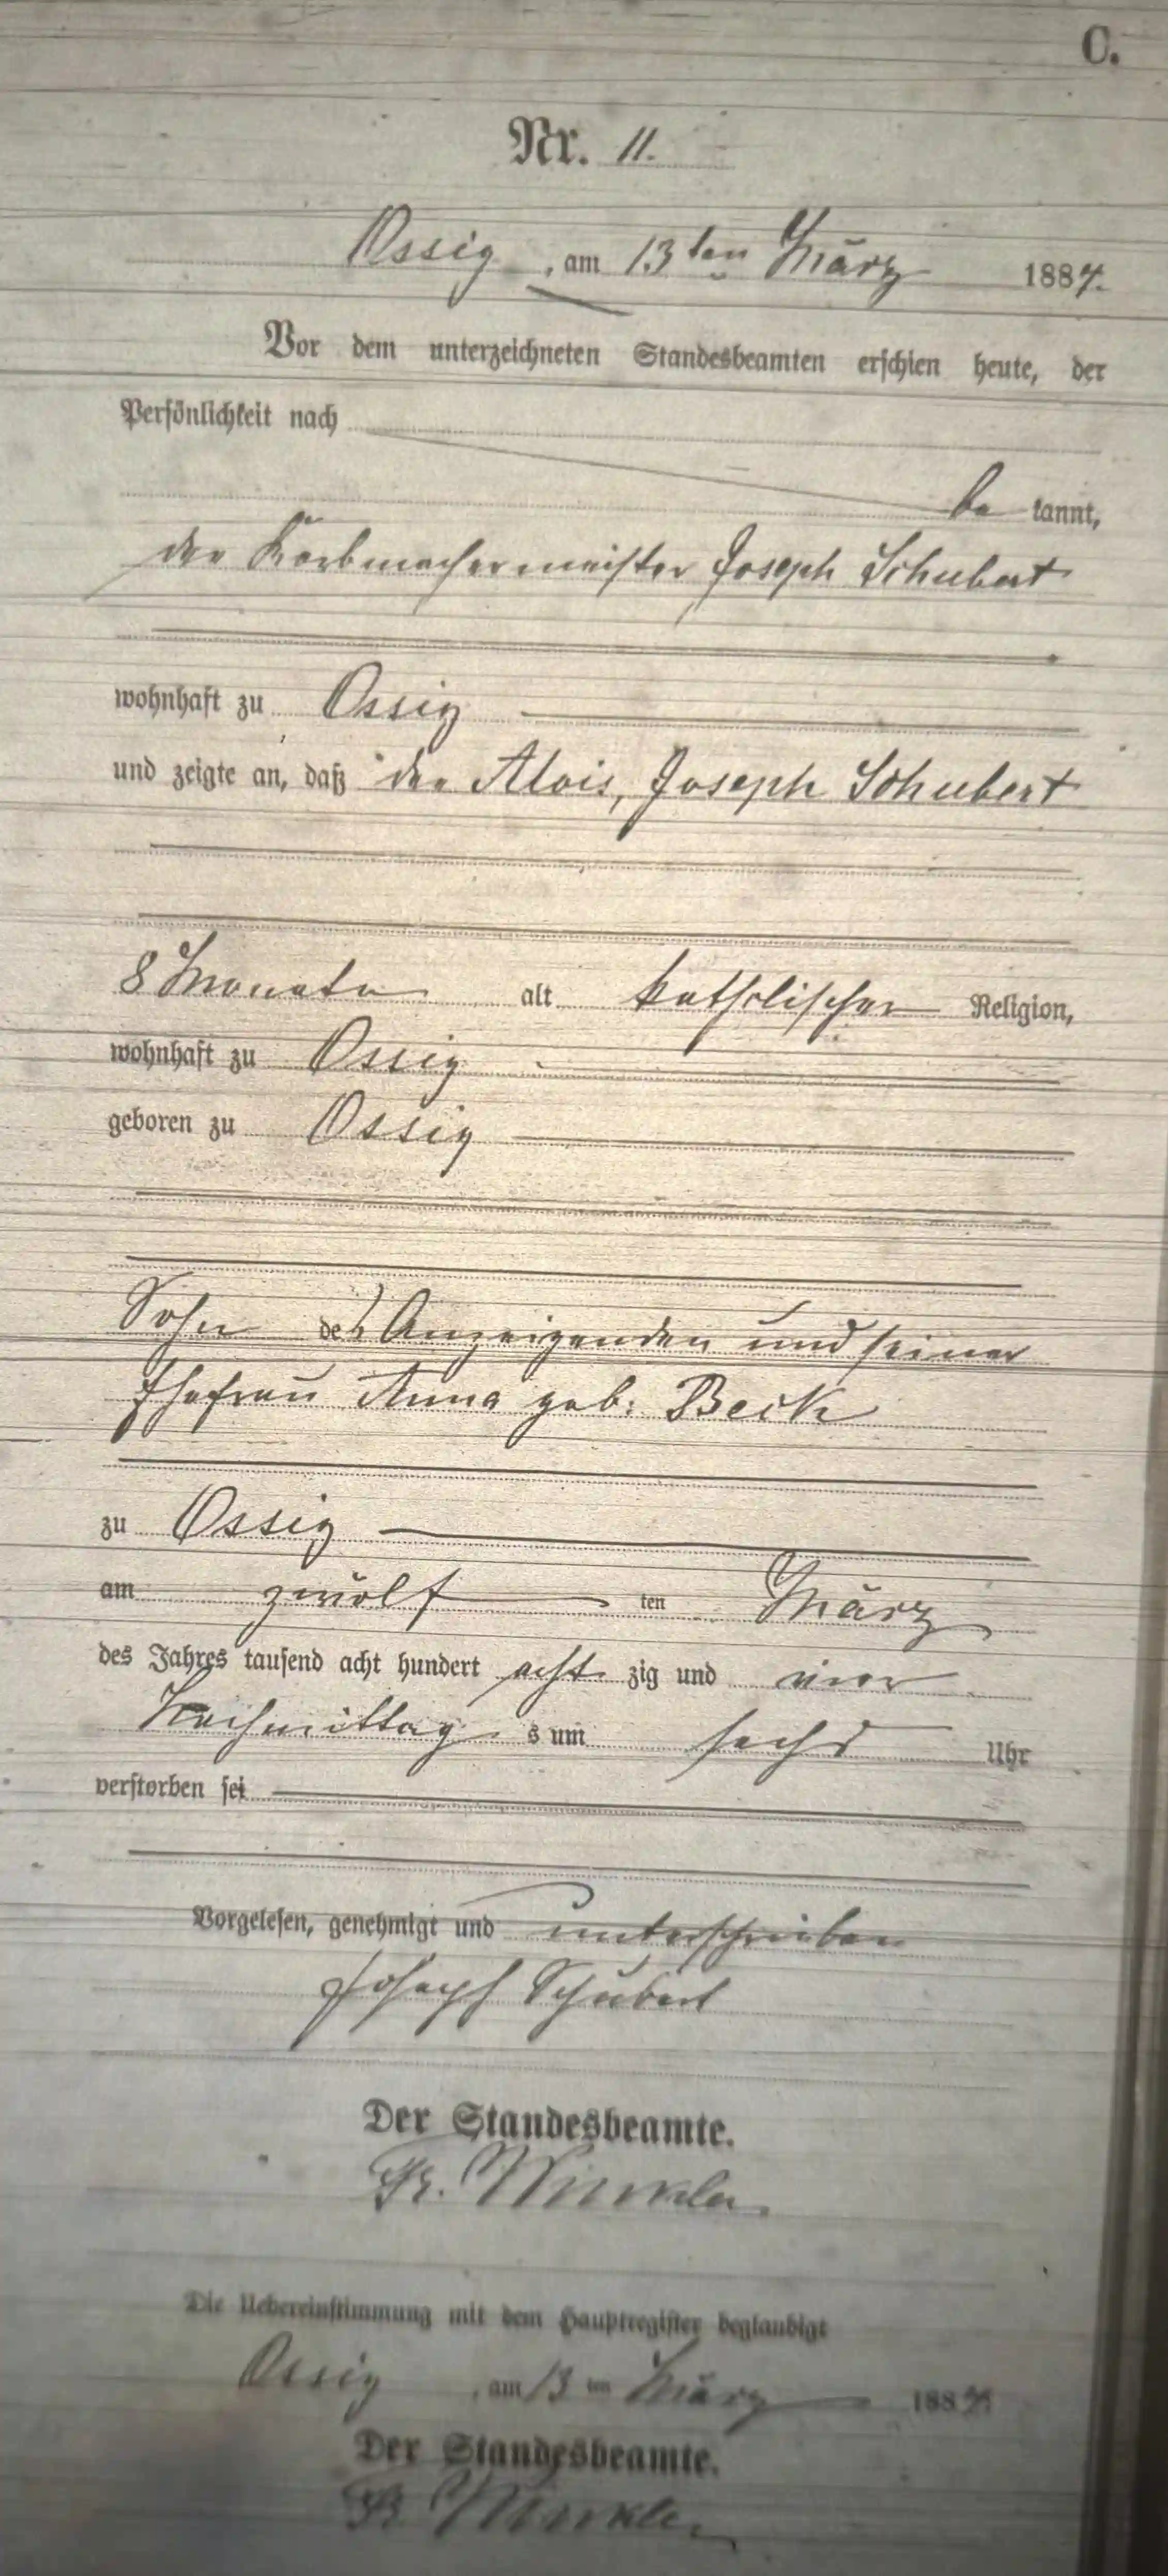 C.
Nr. 11.
Ossig, am 13ten März 1884.
Vor dem unterzeichneten Standesbeamten erschien heute, der
Persönlichkeit nach
be kannt,
der Korbmachermeister Joseph Schubert
wohnhaft zu Ossig
und zeigte an, daß der Alois, Joseph Schubert
8 Monate alt katholischer Religion,
wohnhaft zu Ossig
geboren zu Ossig
Sohn des Anzeigenden und seiner
Ehefrau Anna geb: Beck
zu Ossig
am zwölf ten März
des Jahres tausend acht hundert acht zig und vier
Nachmittag s um sechs Uhr
verstorben sei
Vorgelesen, genehmigt und unterschrieben
Joseph Schubert
Der Standesbeamte.
Fr. Winkler
Die Uebereinstimmung mit dem Hauptregister beglaubigt
Ossig, am 13 ten März 1884
Der Standesbeamte.
Fr. Winkler